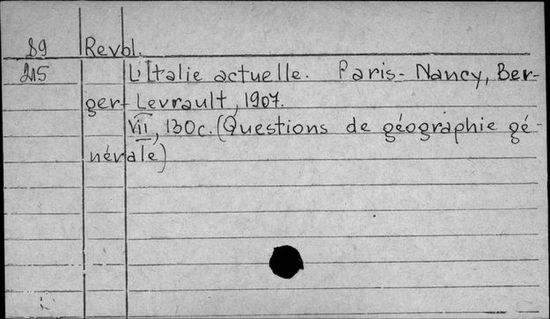 89 Revbl.
215 L'Italie actuelle. Paris-Nancy, Ber-
ger-Levrault, 1907.
VII, 130c. (Questions de géographie gé-
nérale)